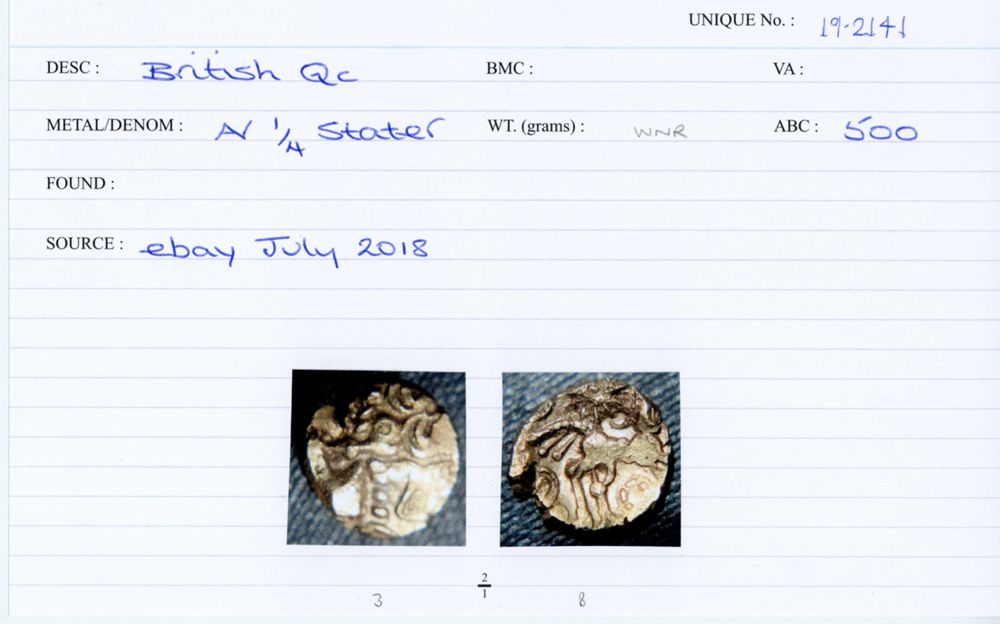 UNIQUE No. : 19-2141
DESC : British Qc BMC : VA :
METAL/DENOM : AV 1/4 Stater WT. (grams) : WNR ABC : 500
FOUND :
SOURCE : ebay July 2018
2/1
3 8